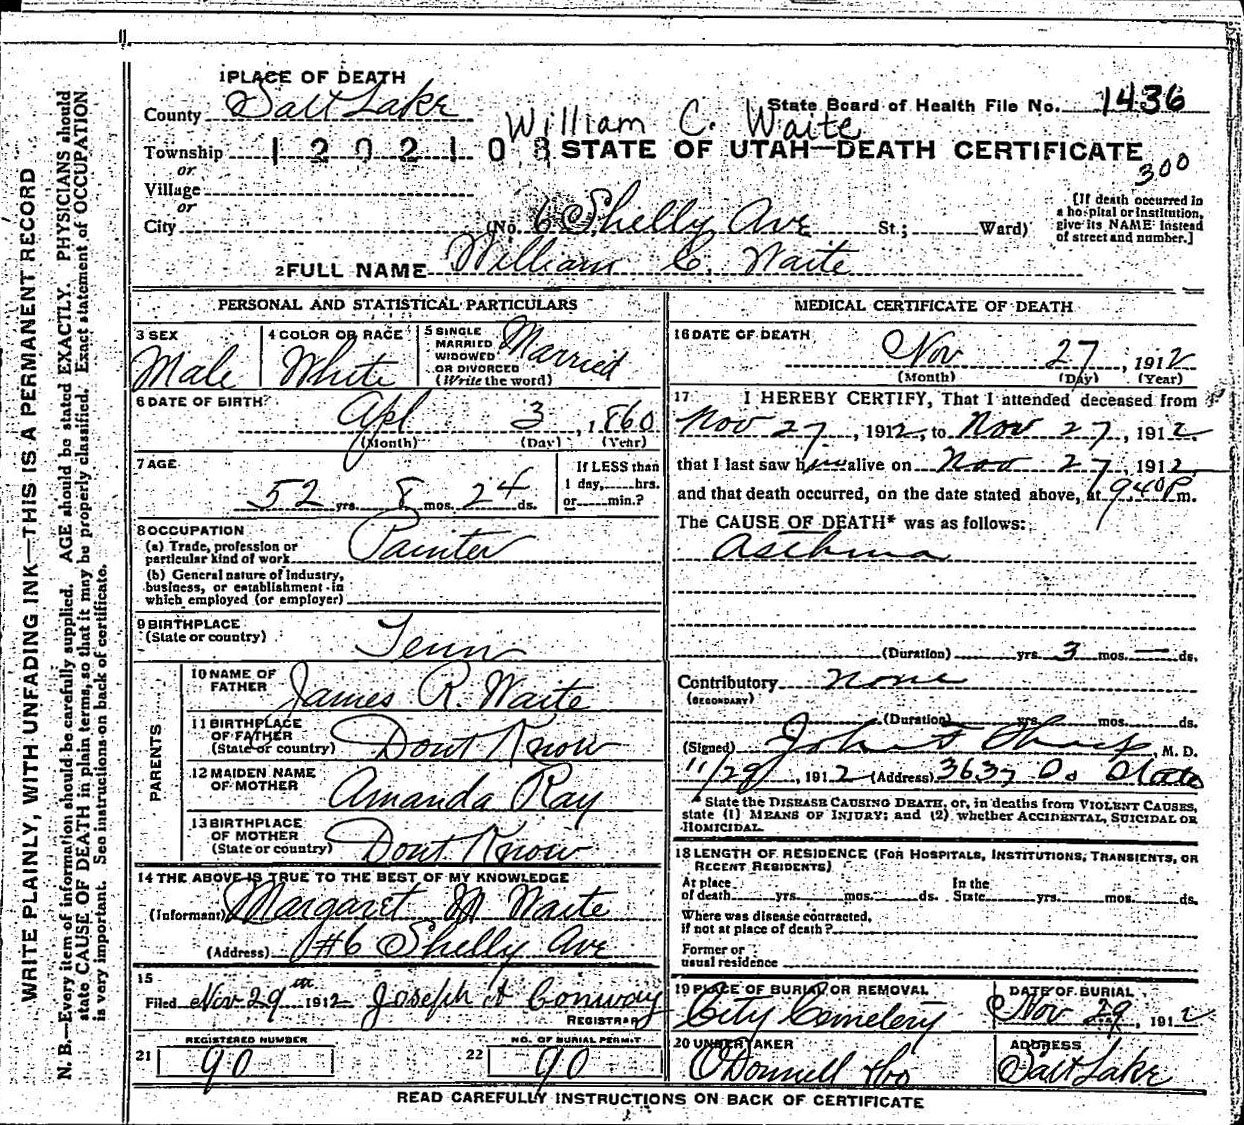 1 PLACE OF DEATH
County Salt Lake
State Board of Health File No. 1436
William C. Waite
Township 1202108
STATE OF UTAH—DEATH CERTIFICATE
300
or
Village
or
City (No. 6 Shelly Ave St.; Ward)
[If death occurred in
a hospital or institution,
give its NAME instead
of street and number.]
2 FULL NAME William C. Waite
WRITE PLAINLY, WITH UNFADING INK—THIS IS A PERMANENT RECORD
N. B.—Every item of information should be carefully supplied. AGE should be stated EXACTLY. PHYSICIANS should
state CAUSE OF DEATH in plain terms, so that it may be properly classified. Exact statement of OCCUPATION
is very important. See instructions on back of certificate.
PERSONAL AND STATISTICAL PARTICULARS
3 SEX Male
4 COLOR OR RACE White
5 SINGLE
MARRIED
WIDOWED
OR DIVORCED
(Write the word) Married
6 DATE OF BIRTH
Apl 3, 1860
(Month) (Day) (Year)
7 AGE
52 yrs. 8 mos. 24 ds.
If LESS than
1 day, hrs.
or min.?
8 OCCUPATION
(a) Trade, profession or
particular kind of work Painter
(b) General nature of industry,
business, or establishment in
which employed (or employer)
9 BIRTHPLACE
(State or country) Tenn
PARENTS
10 NAME OF
FATHER James R. Waite
11 BIRTHPLACE
OF FATHER
(State or country) Dont Know
12 MAIDEN NAME
OF MOTHER Amanda Ray
13 BIRTHPLACE
OF MOTHER
(State or country) Dont Know
14 THE ABOVE IS TRUE TO THE BEST OF MY KNOWLEDGE
(Informant) Margaret M Waite
(Address) #6 Shelly Ave
15
Filed Nov 29th 1912 Joseph A Conway
REGISTRAR
21 REGISTERED NUMBER
90
22 NO. OF BURIAL PERMIT
90
MEDICAL CERTIFICATE OF DEATH
16 DATE OF DEATH
Nov 27, 1912
(Month) (Day) (Year)
17 I HEREBY CERTIFY, That I attended deceased from
Nov 27, 1912, to Nov 27, 1912,
that I last saw him alive on Nov 27, 1912
and that death occurred, on the date stated above, at 940 P m.
The CAUSE OF DEATH* was as follows:
Asthma
(Duration) yrs. 3 mos. — ds.
Contributory None
(SECONDARY)
(Duration) yrs. mos. ds.
(Signed) M. D.
11/29, 1912 (Address) 3637 So State
* State the DISEASE CAUSING DEATH, or, in deaths from VIOLENT CAUSES,
state (1) MEANS OF INJURY; and (2) whether ACCIDENTAL, SUICIDAL OR
HOMICIDAL.
18 LENGTH OF RESIDENCE (FOR HOSPITALS, INSTITUTIONS, TRANSIENTS, OR
RECENT RESIDENTS)
At place In the
of death yrs. mos. ds. State yrs. mos. ds.
Where was disease contracted,
if not at place of death?
Former or
usual residence
19 PLACE OF BURIAL OR REMOVAL
City Cemetery
DATE OF BURIAL
Nov 29, 1912
20 UNDERTAKER
O'Donnell & Co
ADDRESS
Salt Lake
READ CAREFULLY INSTRUCTIONS ON BACK OF CERTIFICATE